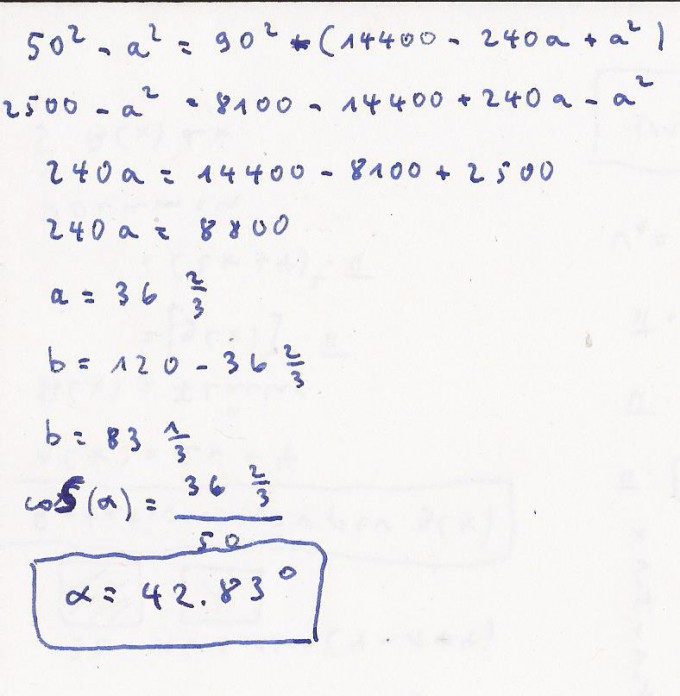 50² - a² = 90² - (14400 - 240a + a²)
2500 - a² = 8100 - 14400 + 240a - a²
240a = 14400 - 8100 + 2500
240a = 8800
a = 36 2/3
b = 120 - 36 2/3
b = 83 1/3
cos(α) = 36 2/3 / 50
α = 42.83°